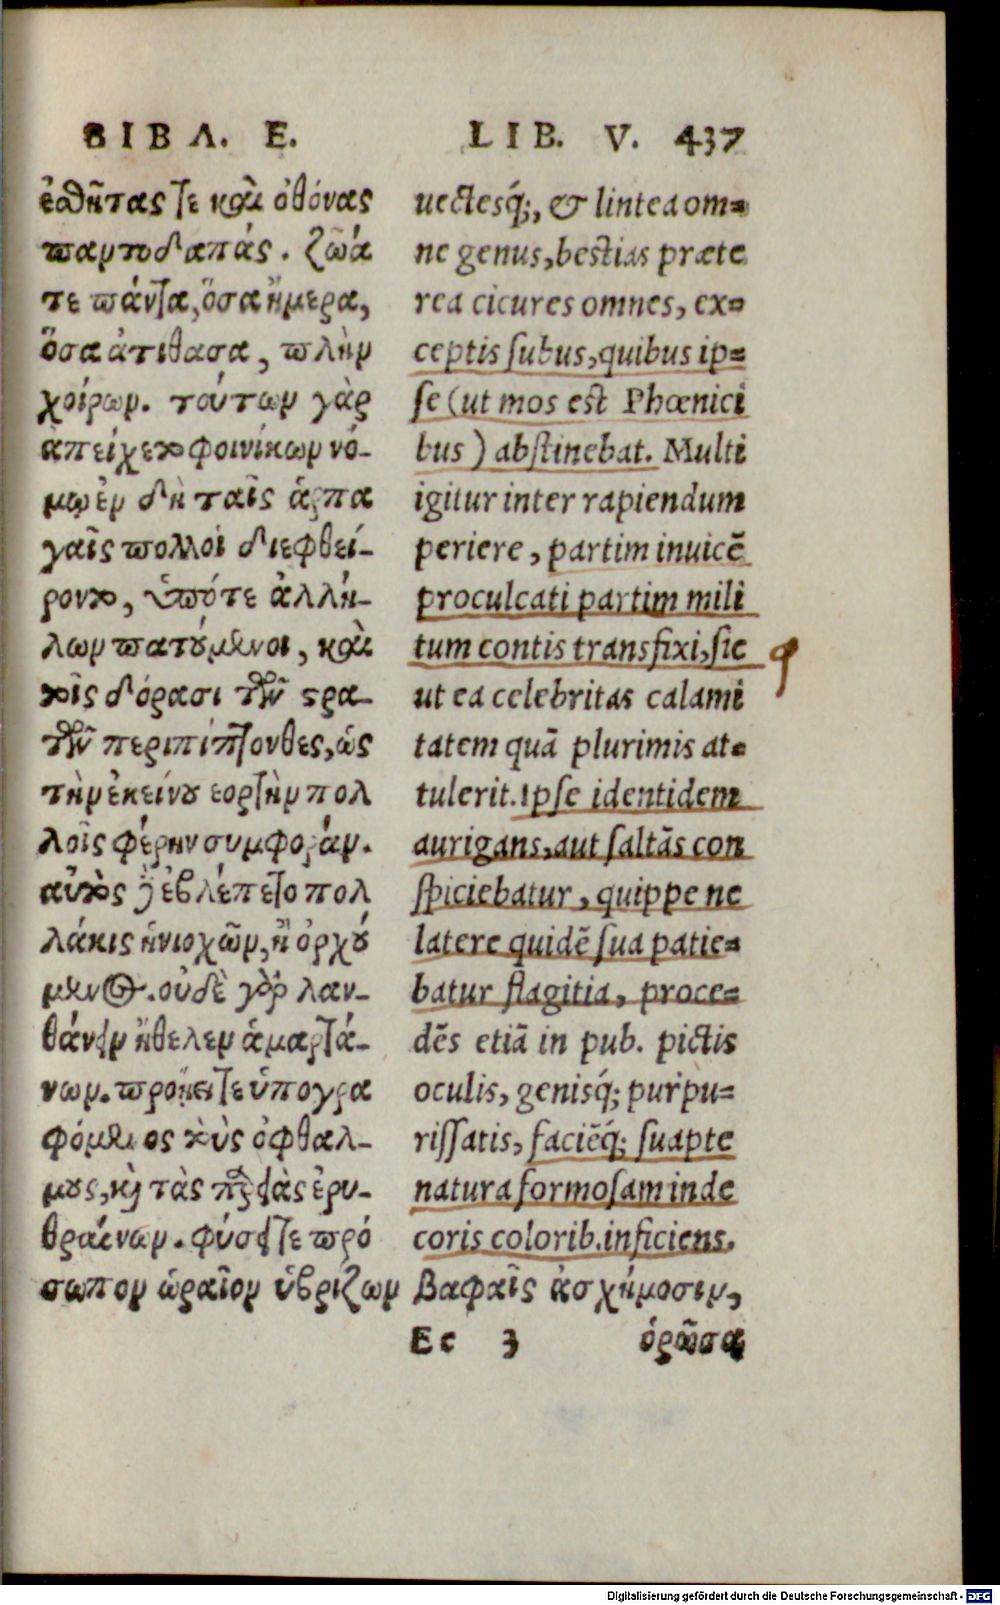 ΒΙΒΛ. Ε.
ἐσθῆτας τε καὶ ὀθόνας
παντοδαπάς. ζῶά
τε πάντα, ὅσα ἥμερα,
ὅσα ἀτιθασα, πλὴν
χοίρων. τούτων γὰρ
ἀπείχετο φοινίκων νό-
μῳ ἐν δὴ ταῖς ἁρπα
γαῖς πολλοὶ διεφθεί-
ροντο, ὑπότε ἀλλή-
λων πατούμενοι, καὶ
τοῖς δόρασι τῶν στρα-
τῶν περιπίπτοντες, ὡς
τὴν ἐκείνου εορτὴν πολ
λοῖς φέρην συμφοράν.
αὐτὸς δὲ ἐβλέπετο πολ
λάκις ἡνιοχῶν, ἢ ὀρχού
μενος. οὐδὲ γὰρ λαν-
θάνειν ἤθελεν ἁμαρτά-
νων. προῄει τε ὑπογρα
φόμενος τοὺς ὀφθαλ-
μους, καὶ τὰς παρειὰς ἐρυ-
θραίνων. φύσει τε πρό
σωπον ὡραῖον ὑβρίζων βαφαῖς ἀσχήμοσιν,
ὁρῶσα
LIB. V. 437
uectesq́;, & lintea om=
ne genus, bestias præte
rea cicures omnes, ex=
ceptis subus, quibus ip=
se (ut mos est Phœnici
bus) abstinebat. Multi
igitur inter rapiendum
periere, partim inuicẽ
proculcati partim mili
tum contis transfixi, sic
ut ea celebritas calami
tatem quã plurimis at=
tulerit. Ipse identidem
aurigans, aut saltãs con
spiciebatur, quippe ne
latere quidẽ sua patie=
batur flagitia, proce=
dẽs etiã in pub. pictis
oculis, genisq́; purpu=
rissatis, faciẽq́; suapte
natura formosam inde
coris colorib. inficiens.
Ee 3